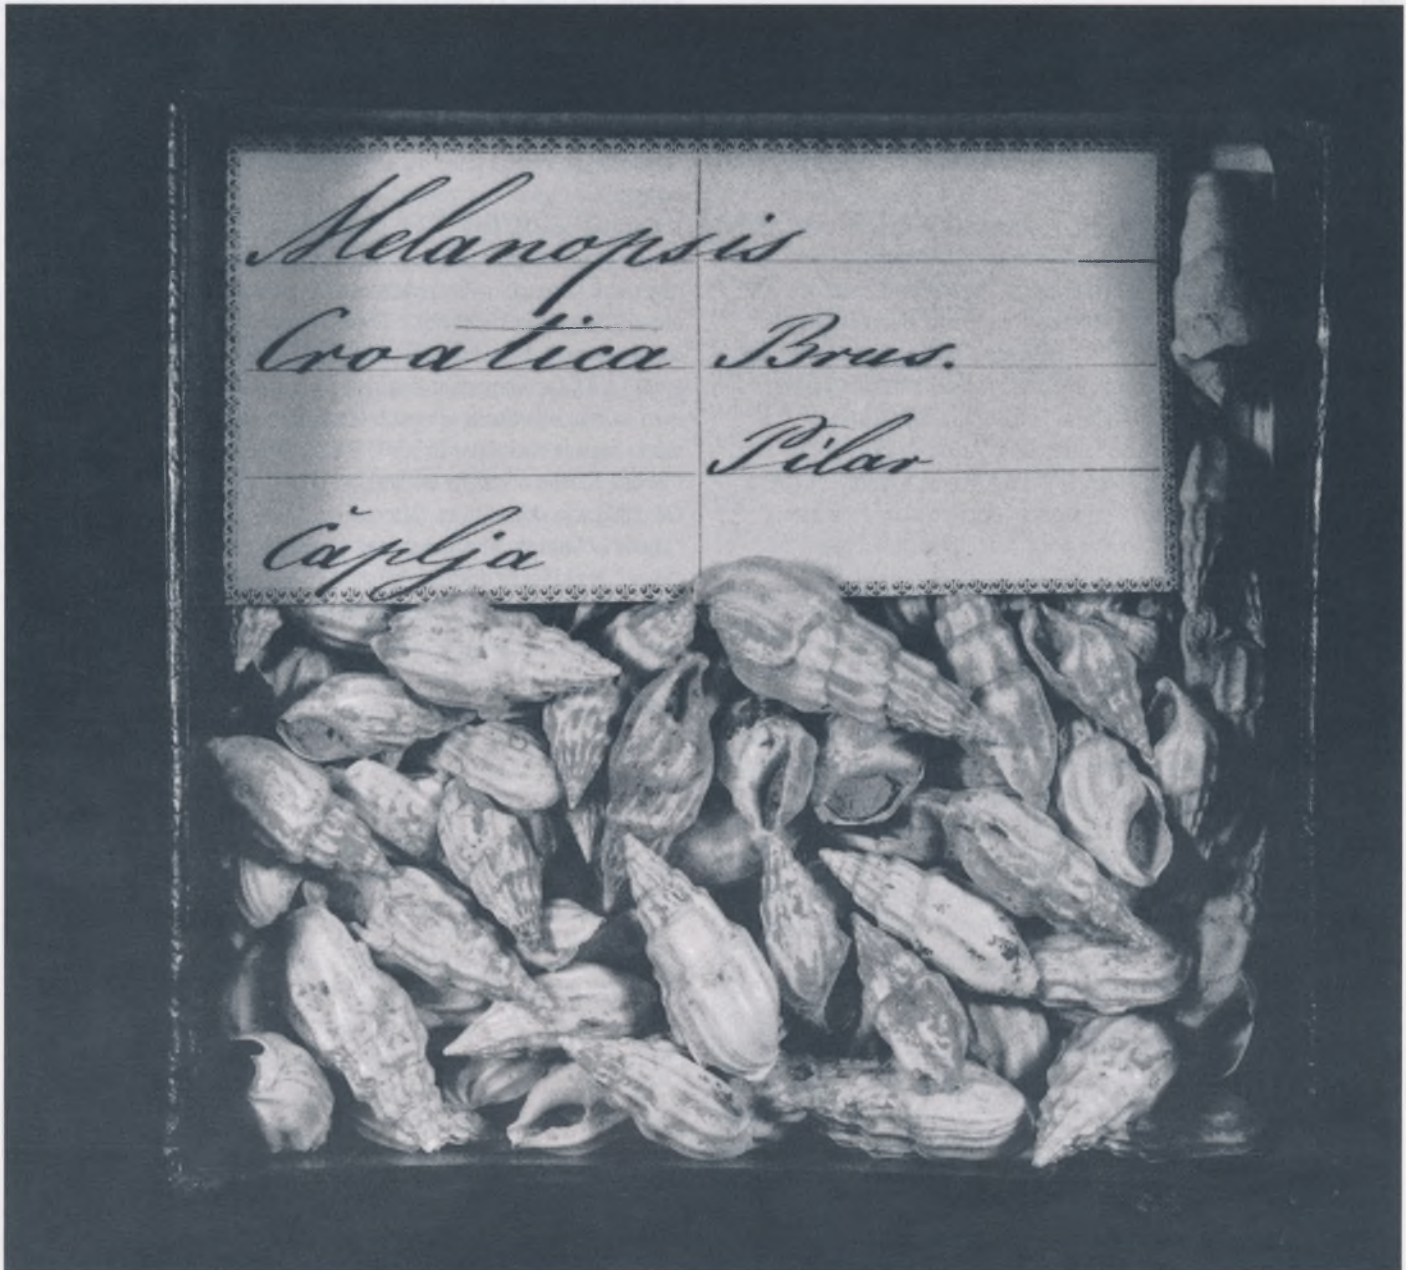 Melanopsis
Croatica Brus.
Pilar
Čaplja